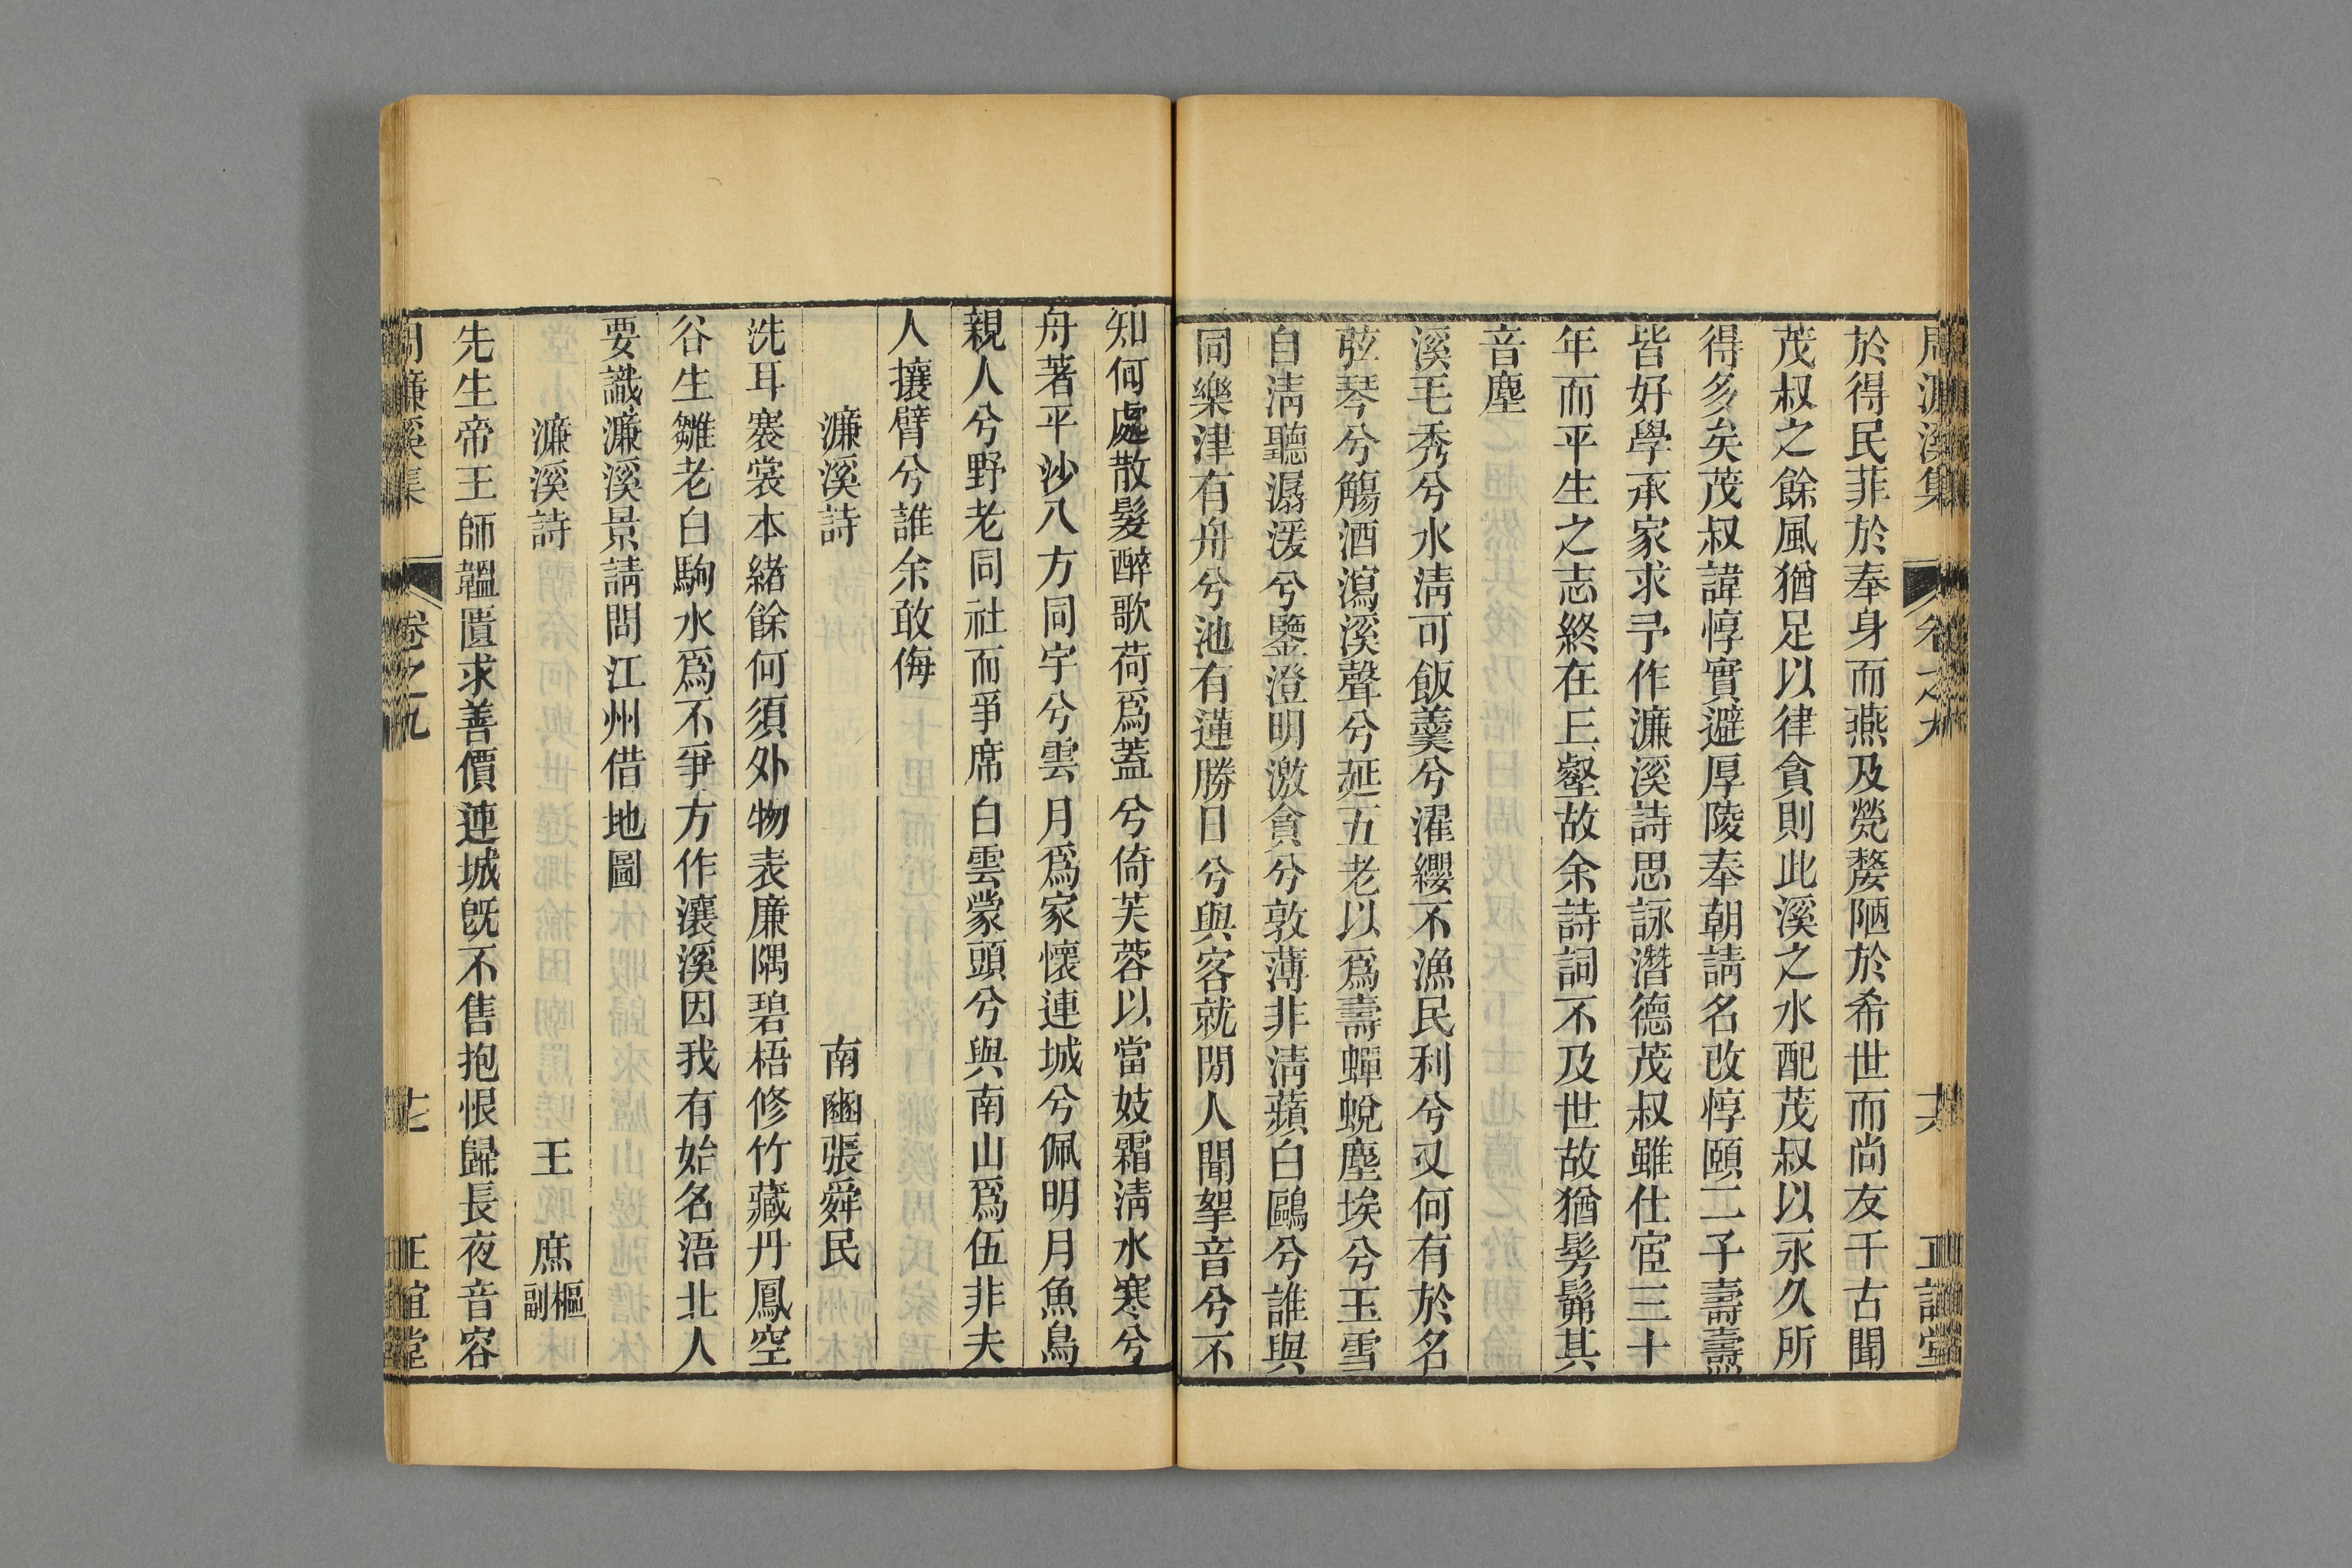 周濂溪集 卷之九 十六 正誼堂
於得民菲於奉身而燕及㷀嫠陋於希世而尚友千古聞
茂叔之餘風猶足以律貪則此溪之水配茂叔以永久所
得多矣茂叔諱惇實避厚陵奉朝請名改惇頤二子壽燾
皆好學承家求予作濂溪詩思詠潛德茂叔雖仕宦三十
年而平生之志終在丘壑故余詩詞不及世故猶髣髴其
音塵
溪毛秀兮水淸可飯羹兮濯纓不漁民利兮又何有於名
弦琴兮觴酒瀉溪聲兮延五老以爲壽蟬蛻塵埃兮玉雪
自淸聽潺湲兮鑒澄明激貪兮敦薄非淸蘋白鷗兮誰與
同樂津有舟兮池有蓮勝日兮與客就閒人聞挐音兮不
知何處散髮醉歌荷爲蓋兮倚芙蓉以當妓霜淸水寒兮
舟著平沙八方同宇兮雲月爲家懷連城兮佩明月魚鳥
親人兮野老同社而爭席白雲蒙頭兮與南山爲伍非夫
人攘臂兮誰余敢侮
濂溪詩 南豳張舜民
洗耳褰裳本緖餘何須外物表廉隅碧梧修竹藏丹鳳空
谷生雛老白駒水爲不爭方作瀼溪因我有始名浯北人
要識濂溪景請問江州借地圖
濂溪詩 王 庶樞副
先生帝王師韞匵求善價連城旣不售抱恨歸長夜音容
周濂溪集 卷之九 十七 正誼堂